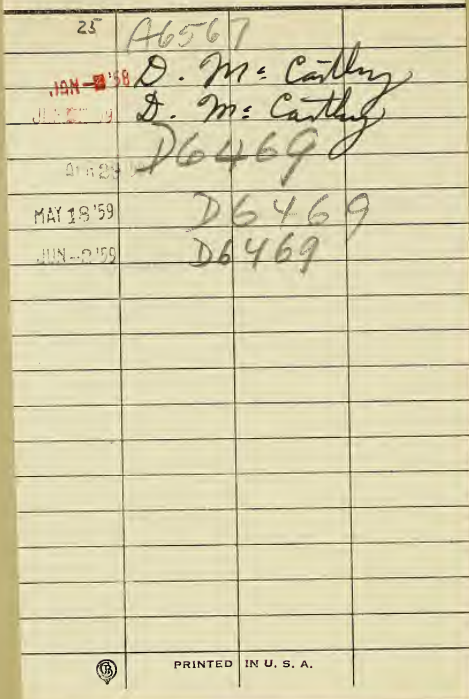 25 A6567
JAN - '58 D. Mc Carthy
D. Mc Carthy
D6469
MAY 18 '59 D6469
JUN - '59 D6469
PRINTED IN U. S. A.